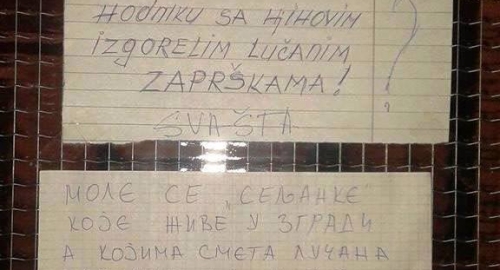 HODNIKU SA NJIHOVIM
IZGORELIM LUČANIM
ZAPRŠKAMA!
?
SVAŠTA
МОЛЕ СЕ „СЕЉАНКЕ”
КОЈЕ ЖИВЕ У ЗГРАДИ
А КОЈИМА СМЕТА ЛУЧАНА